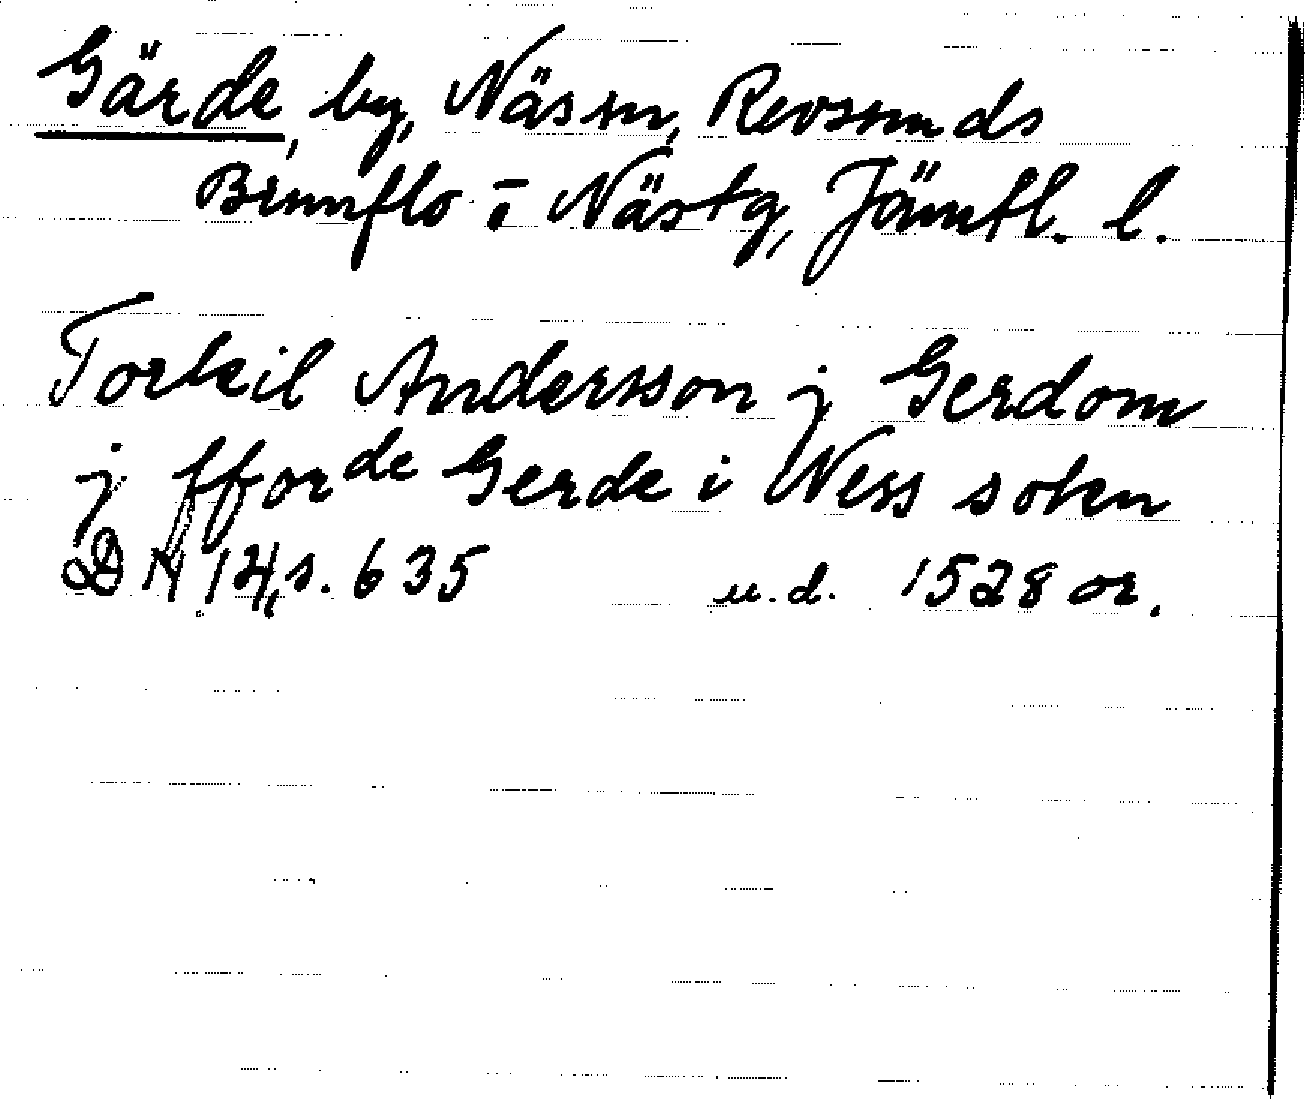 Gärde, by, Näs sn, Revsunds
Brunflo o Näs tg, Jämtl. l.
Torkil Andersson j Gerdom
j fforde Gerde i Ness soken
DN 14, s. 635 u.d. 1528 or.